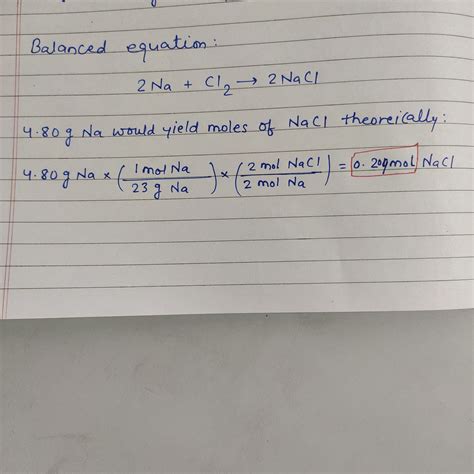 Balanced equation:
2Na + Cl₂ → 2NaCl
4.80g Na would yield moles of NaCl theoreically:
4.80g Na × (1 mol Na / 23 g Na) × (2 mol NaCl / 2 mol Na) = 0.209mol NaCl